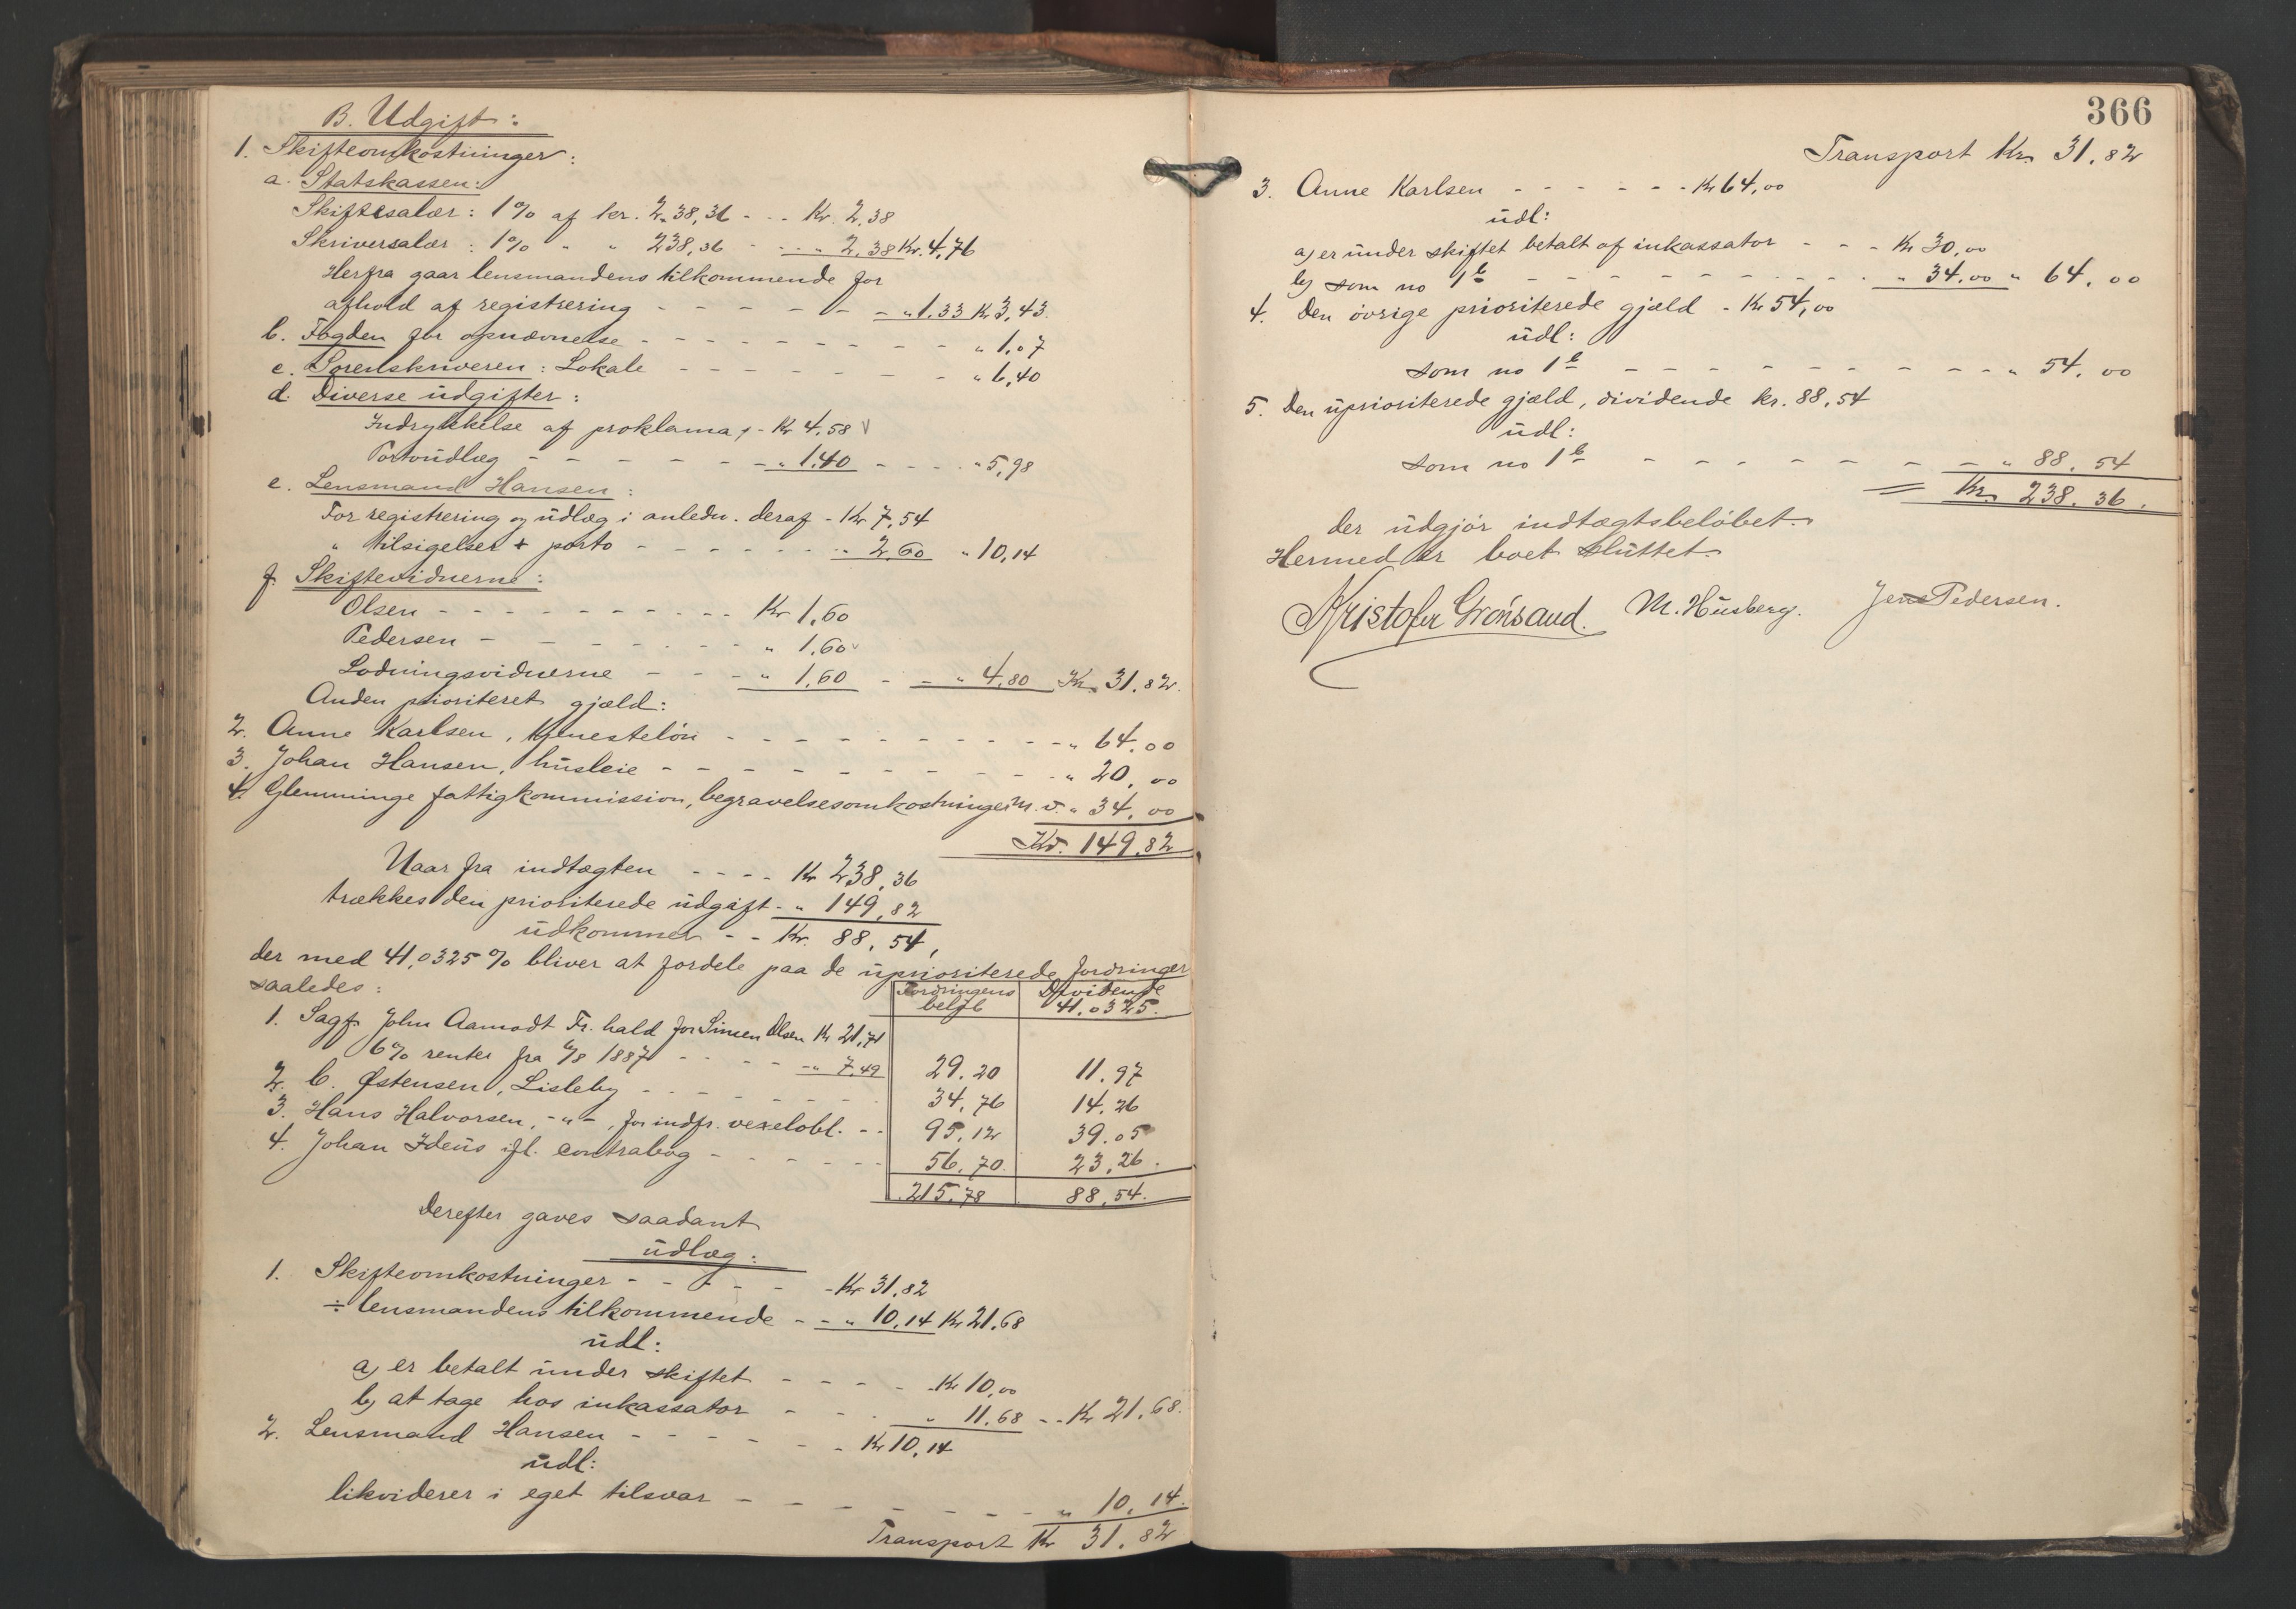 B. Udgift:
1. Skifteomkostninger:
a. Statskassen:
Skiftesalær: 1% af kr. 238,36 - - - Kr. 2,38
Skriversalær: 1% " " 238,36 - - - " 2,38 Kr. 4,76
Herfra gaar lensmandens tilkommende for
afhold af registrering - - - - - - - " 1.33 Kr 3,43.
b. Fogden for opnævnelse - - - - - - - - - " 1.07
c. Sorenskriveren: Lokale - - - - - - - " 6,40
d. Diverse udgifter:
Indrykkelse af proklama, - Kr 4,58
Portoudlæg - - - - - - - " 1.40 - - - - " 5,98
e. Lensmand Hansen:
For registrering og udlæg i anledn. deraf - Kr 7,54
" tilsigelser + porto - - - - - - - " 2,60 " 10,14
f. Skiftevidnerne:
Olsen - - - - - - - - - - Kr 1,60
Pedersen - - - - - - - " 1,60
Lodningsvidnerne - - - " 1,60 - - " 4,80 Kr. 31.82.
Anden prioriteret gjæld:
2. Anne Karlsen, tjenesteløn - - - - - - - - - - " 64.00
3. Johan Hansen, husleie - - - - - - - - - - " 20,00
4. Glemminge fattigkommission, begravelsesomkostninger m.v. " 34,00
Kr. 149.82
Naar fra indtægten - - - - Kr 238,36
trækkes den prioriterede udgift - " 149,82
udkommer - - Kr. 88,54,
der med 41,0325% bliver at fordele paa de uprioriterede fordringer
saaledes: Fordringens beløb Dividende 41.0325.
1. Sagf. John Aamodt Fr.hald for Simen Olsen Kr 21,71
6% renter fra 6/8 1887 - - - - " 7,49 29.20 11.97
2. C. Østensen, Lisleby - - - - - - - 34,76 14.26
3. Hans Halvorsen, -"-, for indfr. vexelobl. - - 95,12 39.05
4. Johan Ideus ifl. contrabog - - - - - - 56,70 23,26.
215.78 88,54.
Derefter gaves saadant
udlæg:
1. Skifteomkostninger - - - - - Kr 31,82
÷ lensmandens tilkommende - - " 10,14 Kr 21,68
udl:
a) er betalt under skiftet - - - - - Kr 10,00
b) at tage hos inkassator - - - " 11.68 - - Kr 21,68.
2. Lensmand Hansen - - - - - - Kr 10,14
udl:
likviderer i eget tilsvar - - - - - - - " 10,14.
Transport Kr 31.82
366
Transport Kr. 31.82
3. Anne Karlsen - - - - - - - Kr 64,00
udl:
a) er under skiftet betalt af inkassator - - - Kr 30,00
b) som no 1b - - - - - - - - - - " 34.00 " 64.00
4. Den øvrige prioriterede gjæld - Kr 54,00
udl:
som no 1b - - - - - - - - - - - " 54.00
5. Den uprioriterede gjæld, dividende kr. 88,54
udl:
som no 1b - - - - - - - - " 88.54
Kr. 238.36.
der udgjør indtægtsbeløbet.
Hermed er boet sluttet.
Kristofer Grønsand. M. Husberg. Jens Pedersen.